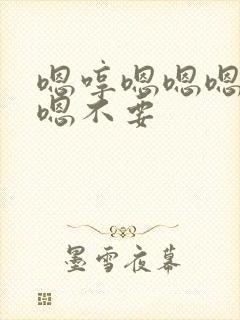 嗯哼嗯嗯嗯
嗯不要
墨雪夜幕